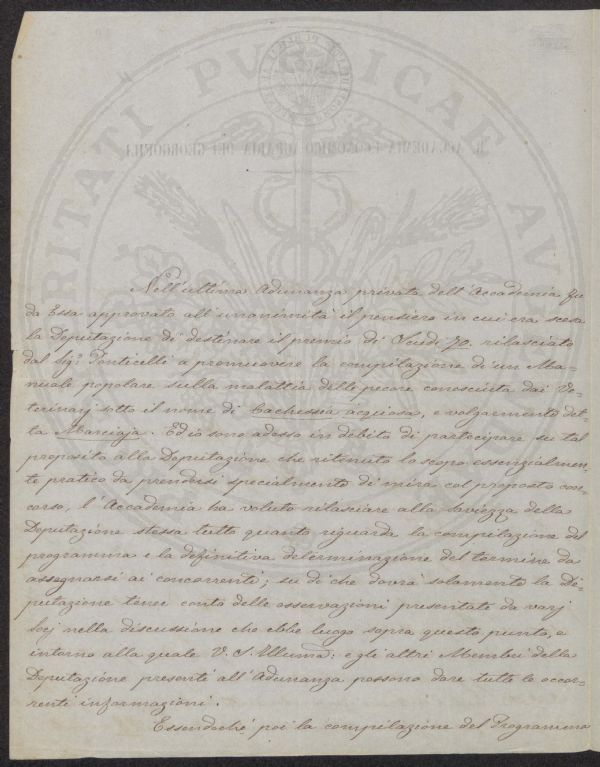 Nell'ultima Adunanza privata dell'Accademia fu
da Essa approvato all'unanimità il pensiero in cui era scesa
la Deputazione di destinare il premio di Scudi 70. rilasciato
dal Sigr. Ponticelli a promuovere la compilazione di un Ma=
nuale popolare sulla malattia delle pecore conosciuta dai Ve=
terinarj sotto il nome di Cachessia acquosa, e volgarmente det=
ta Marciaja. Ed io sono adesso in debito di partecipare su tal
proposito alla Deputazione che ritenuto lo scopo essenzialmen=
te pratico da prendersi specialmente di mira col proposto con=
corso, l'Accademia ha voluto rilasciare alla saviezza della
Deputazione stessa tutto quanto riguarda la compilazione del
programma e la definitiva determinazione del termine da
assegnarsi ai concorrenti; su di che dovrà solamente la De=
putazione tener conto delle osservazioni presentate da varj
Socj nella discussione che ebbe luogo sopra questo punto, e
intorno alla quale V. S. Illuma: e gli altri Membri della
Deputazione presenti all'Adunanza possono dare tutte le occor=
renti informazioni.
Essendochè poi la compilazione del Programma